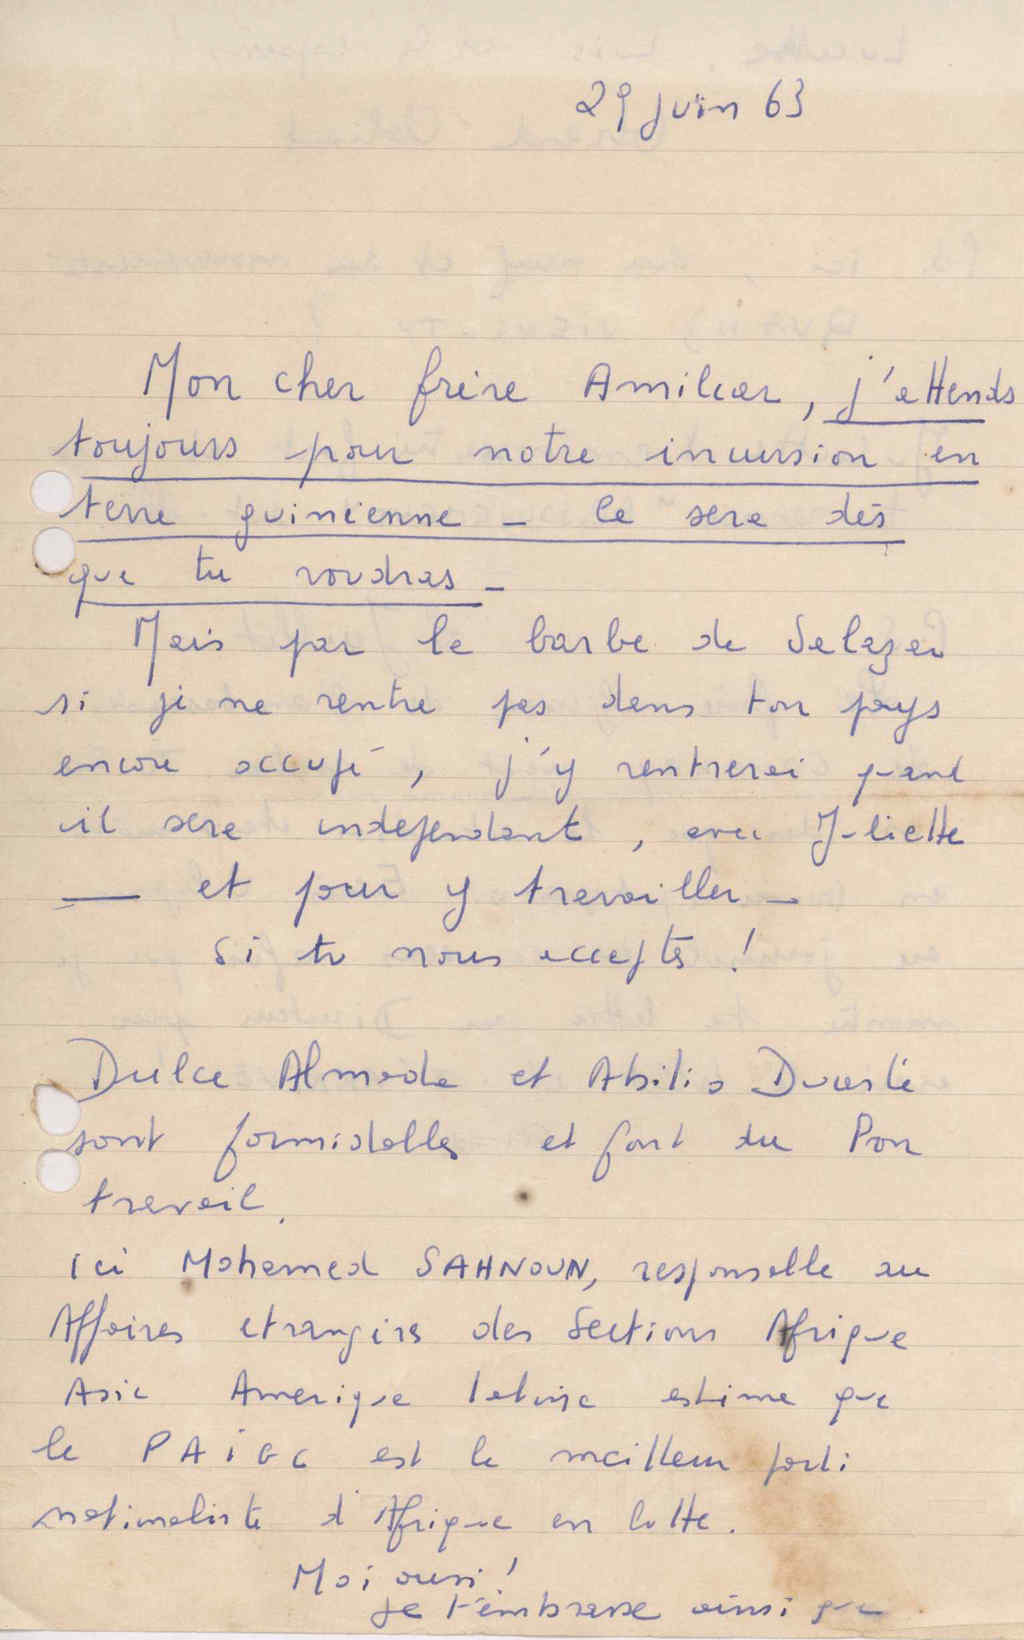 29 juin 63
Mon cher frère Amilcar, j'attends
toujours pour notre incursion en
terre guinéenne - Ce sera dès
que tu voudras -
Mais par la barbe de Salazar
si je ne rentre pas dans ton pays
encore occupé, j'y rentrerai quand
il sera independant, avec Juliette
— et pour y travailler -
Si tu nous acceptes !
Dulce Almada et Abilio Duarte
sont formidables et font du bon
travail.
Ici Mohamed SAHNOUN, responsable au
Affaires etrangères des Sections Afrique
Asie Amerique latine estime que
le PAIGC est le meilleur parti
nationaliste d'Afrique en lutte.
Moi aussi !
Je t'embrasse ainsi que